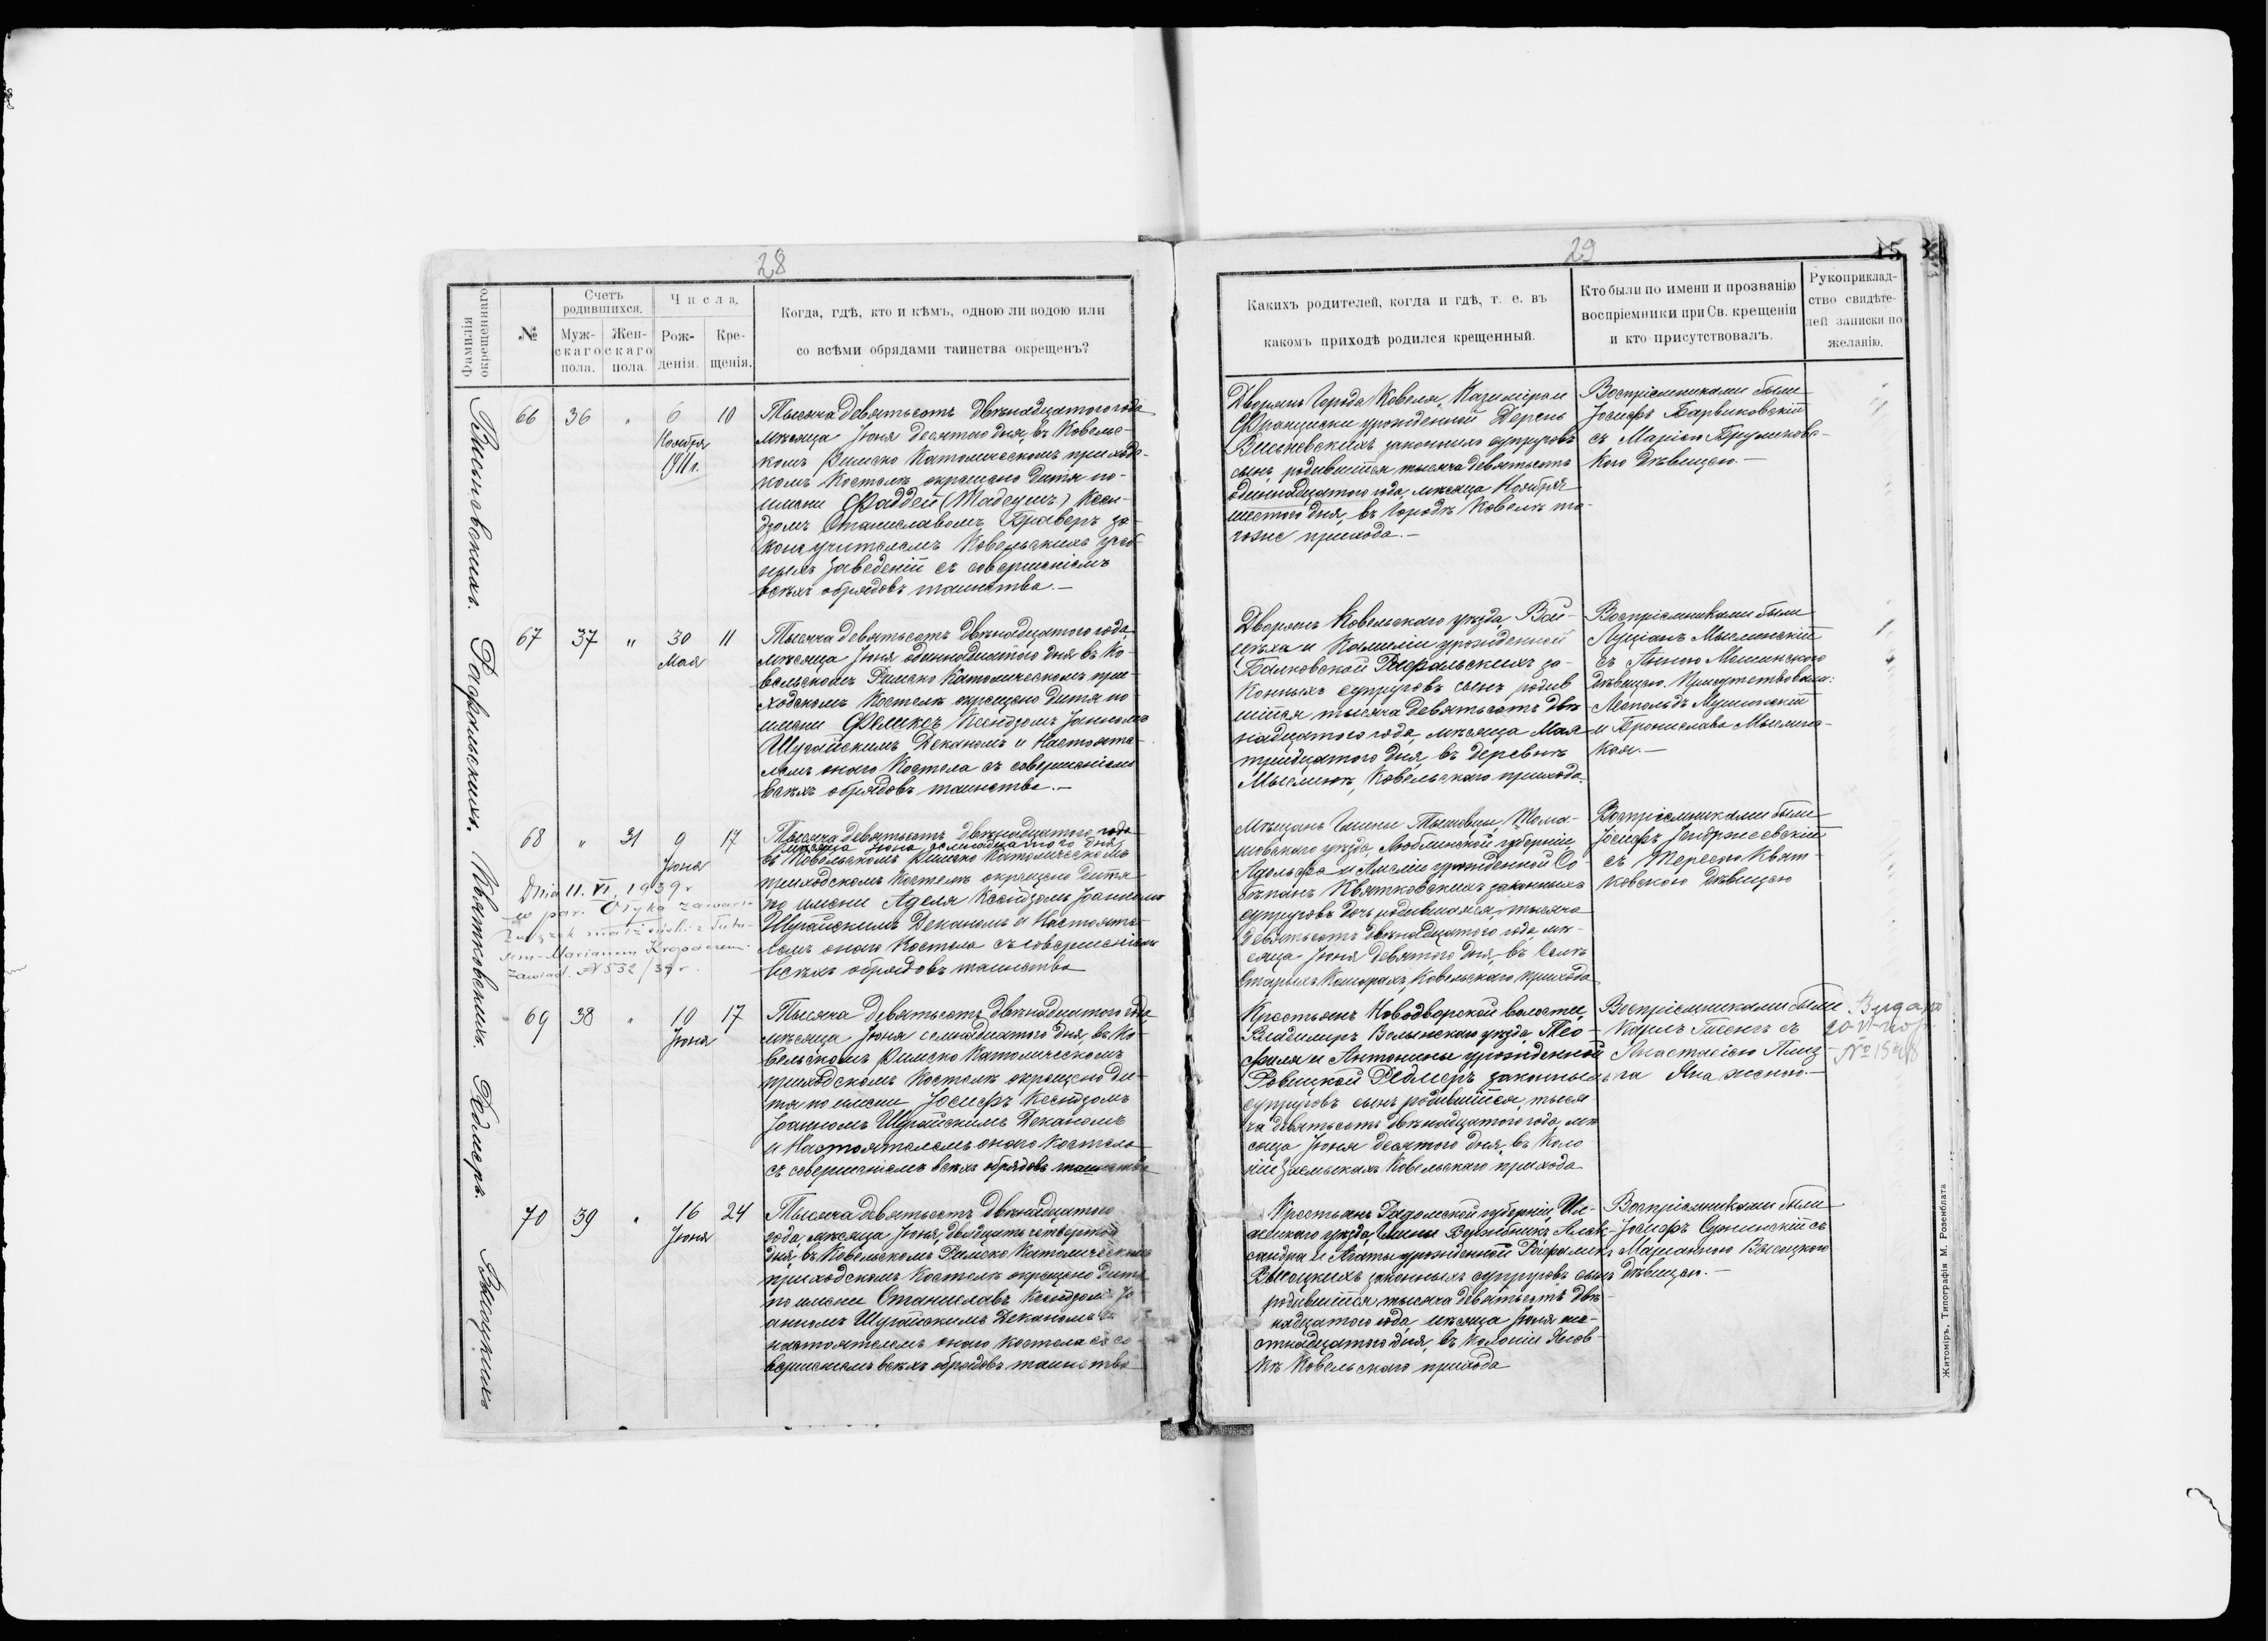 28
Фамилія окрещеннаго
№
Счетъ родившихся.
Мужскаго пола.
Женскаго пола.
Числа,
Рожденія.
Крещенія.
Когда, гдѣ, кто и кѣмъ, одною ли водою или
со всѣми обрядами таинства окрещенъ?
66 36 " 6 10
Ноября
1911 г.
Тысяча девятьсотъ двѣнадцатого года
мѣсяца Іюня десятого дня, въ Ковельс-
комъ Римско Католическомъ приходс-
комъ Костелѣ окрещено дитя по-
имени Фаддей (Тадеушъ) Ксен-
дзомъ Станиславомъ за-
коноучителемъ Ковельскихъ учеб-
ныхъ заведеній съ совершеніемъ
всѣхъ обрядовъ таинства.—
67 37 " 30 11
Мая
Тысяча девятьсотъ двѣнадцатого года,
мѣсяца Іюня одиннадцатого дня въ Ко-
вельскомъ Римско Католическомъ при-
ходскомъ Костелѣ окрещено дитя по
имени Феликсъ Ксендзомъ Іоанномъ
Шуйскимъ Деканомъ и Настояте-
лемъ онаго Костела съ совершеніемъ
всѣхъ обрядовъ таинства.—
68 " 31 9 17
Іюня
Dnia 11. VI. 1939 r
w par. Ołyka zawarł
związek małżeński z
Marianem
zawiad. N 532/39 r.
Тысяча девятьсотъ двѣнадцатого года
мѣсяца Іюня дня
въ Ковельскомъ Римско Католическомъ
приходскомъ Костелѣ окрещено дитя
по имени Аделя Ксендзомъ Іоанномъ
Шуйскимъ Деканомъ и Настояте-
лемъ онаго Костела съ совершеніемъ
всѣхъ обрядовъ таинства
69 38 " 10 17
Іюня
Тысяча девятьсотъ двѣнадцатого года
мѣсяца Іюня семнадцатого дня, въ Ко-
вельскомъ Римско Католическомъ
приходскомъ Костелѣ окрещено ди-
тя по имени Іосифъ Ксендзомъ
Іоанномъ Шуйскимъ Деканомъ
и Настоятелемъ онаго Костела
съ совершеніемъ всѣхъ обрядовъ таинства
70 39 " 16 24
Іюня
Тысяча девятьсотъ двѣнадцатого
года, мѣсяца Іюня, двадцать четвертого
дня, въ Ковельскомъ Римско Католическомъ
приходскомъ Костелѣ окрещено дитя
по имени Станиславъ Ксендзомъ Іо-
анномъ Шуйскимъ Деканомъ и
настоятелемъ онаго костела съ со-
вершеніемъ всѣхъ обрядовъ таинства
Висьневскихъ. Рафальскихъ. Квятковскихъ. Редмеръ. Высоцкихъ
29
15
Какихъ родителей, когда и гдѣ, т. е. въ
какомъ приходѣ родился крещенный.
Кто были по имени и прозванію
воспріемники при Св. крещеніи
и кто присутствовалъ.
Рукоприклад-
ство свидѣте-
лей записки по
желанію.
Дворянъ Города Ковеля, Казимиром
Франциски урожденной Дерень
Висьневскихъ законныхъ супруговъ
сынъ, родившійся тысяча девятьсотъ
одиннадцатого года, мѣсяца Ноября
шестого дня, въ Городѣ Ковелѣ то-
гоже прихода.—
Воспріемниками были
Іосифъ Барвиковскій
съ Маріею
дѣвицею.—
Дворянъ Ковельскаго уѣзда, Вой-
цѣха и Камиліи урожденной
Рафальскихъ за-
конныхъ супруговъ сынъ родив
шійся тысяча девятьсотъ двѣ
надцатого года, мѣсяца Мая
тридцатого дня, въ деревнѣ
Ковельскаго прихода.
Воспріемниками были
Луціанъ
съ Анною
дѣвицею. Присутствовали:
Леопольдъ
и Бронислава
кая.—
Мѣщанъ Гмины Тышовцы, Тома-
шовскаго уѣзда, Люблинской губерніи,
Адольфа и Амеліи урожденной Со-
Квятковскихъ законныхъ
супруговъ дочь родившаяся, тысяча
девятьсотъ двѣнадцатого года, мѣ-
сяца Іюня девятого дня, въ Селѣ
Старыхъ Кошарахъ, Ковельскаго прихода
Воспріемниками были
Іосифъ Іендржеевскій
съ Терезою Квят-
ковскою дѣвицею
Крестьянъ Новодворской волости,
Владимиръ Волынскаго уѣзда, Тео-
филя и Антонины урожденной
Редмеръ законныхъ
супруговъ сынъ родившійся, тыся
ча девятьсотъ двѣнадцатого года, мѣ
сяца Іюня десятого дня, въ Коло
ніи Ковельскаго прихода
Воспріемниками были
Карлъ съ
Анастасіею
Яна женою.—
20-VI-
Крестьянъ Радомской губерніи, Ил-
жецкаго уѣзда, Гмины Вержбникъ, Алек-
сандра и Агаты урожденной
Высоцкихъ законныхъ супруговъ сынъ
родившійся тысяча девятьсотъ двѣ-
надцатого года, мѣсяца Іюня ше-
стнадцатого дня, въ Колоніи
Ковельскаго прихода
Воспріемниками были
Іосифъ съ
Марianною Высоцкою
дѣвицею.—
Житоміръ, Типографія М. Розенблата